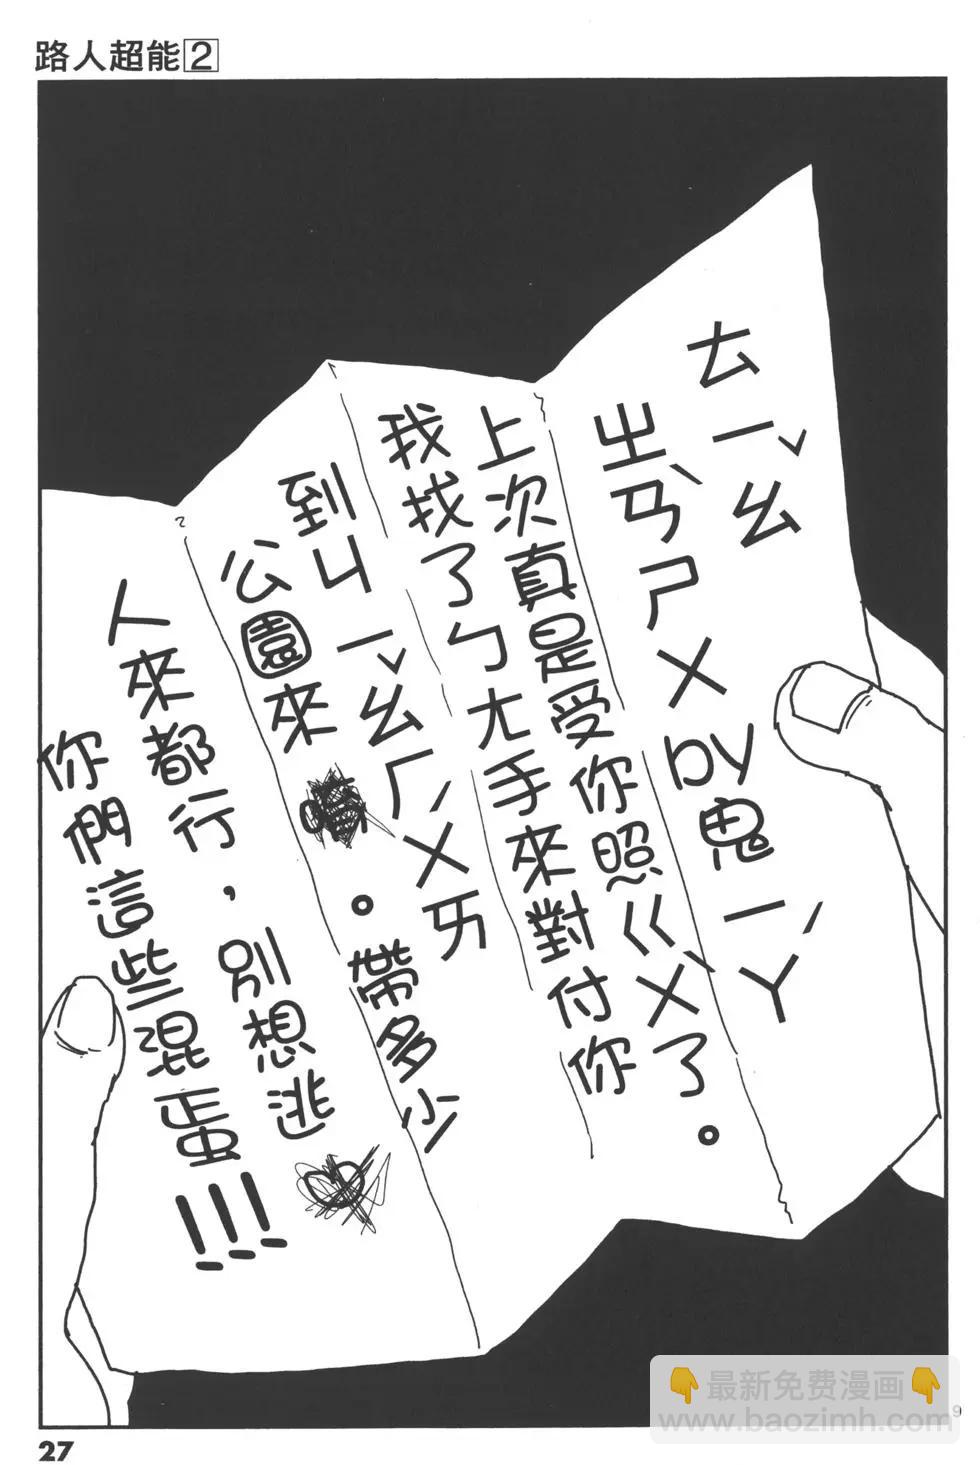 路人超能2
ㄊㄧˇㄠ
ㄓㄢˋㄕㄨby鬼ㄧㄚˊ
上次真是受你照ㄍㄨˋ了。
我找了ㄅㄤ手來對付你
到ㄐㄧˇㄠㄏㄨㄞˊ
公園來 。帶多少
人來都行，別想逃
你們這些混蛋!!!
27
最新免費漫画
www.baozimh.com
9